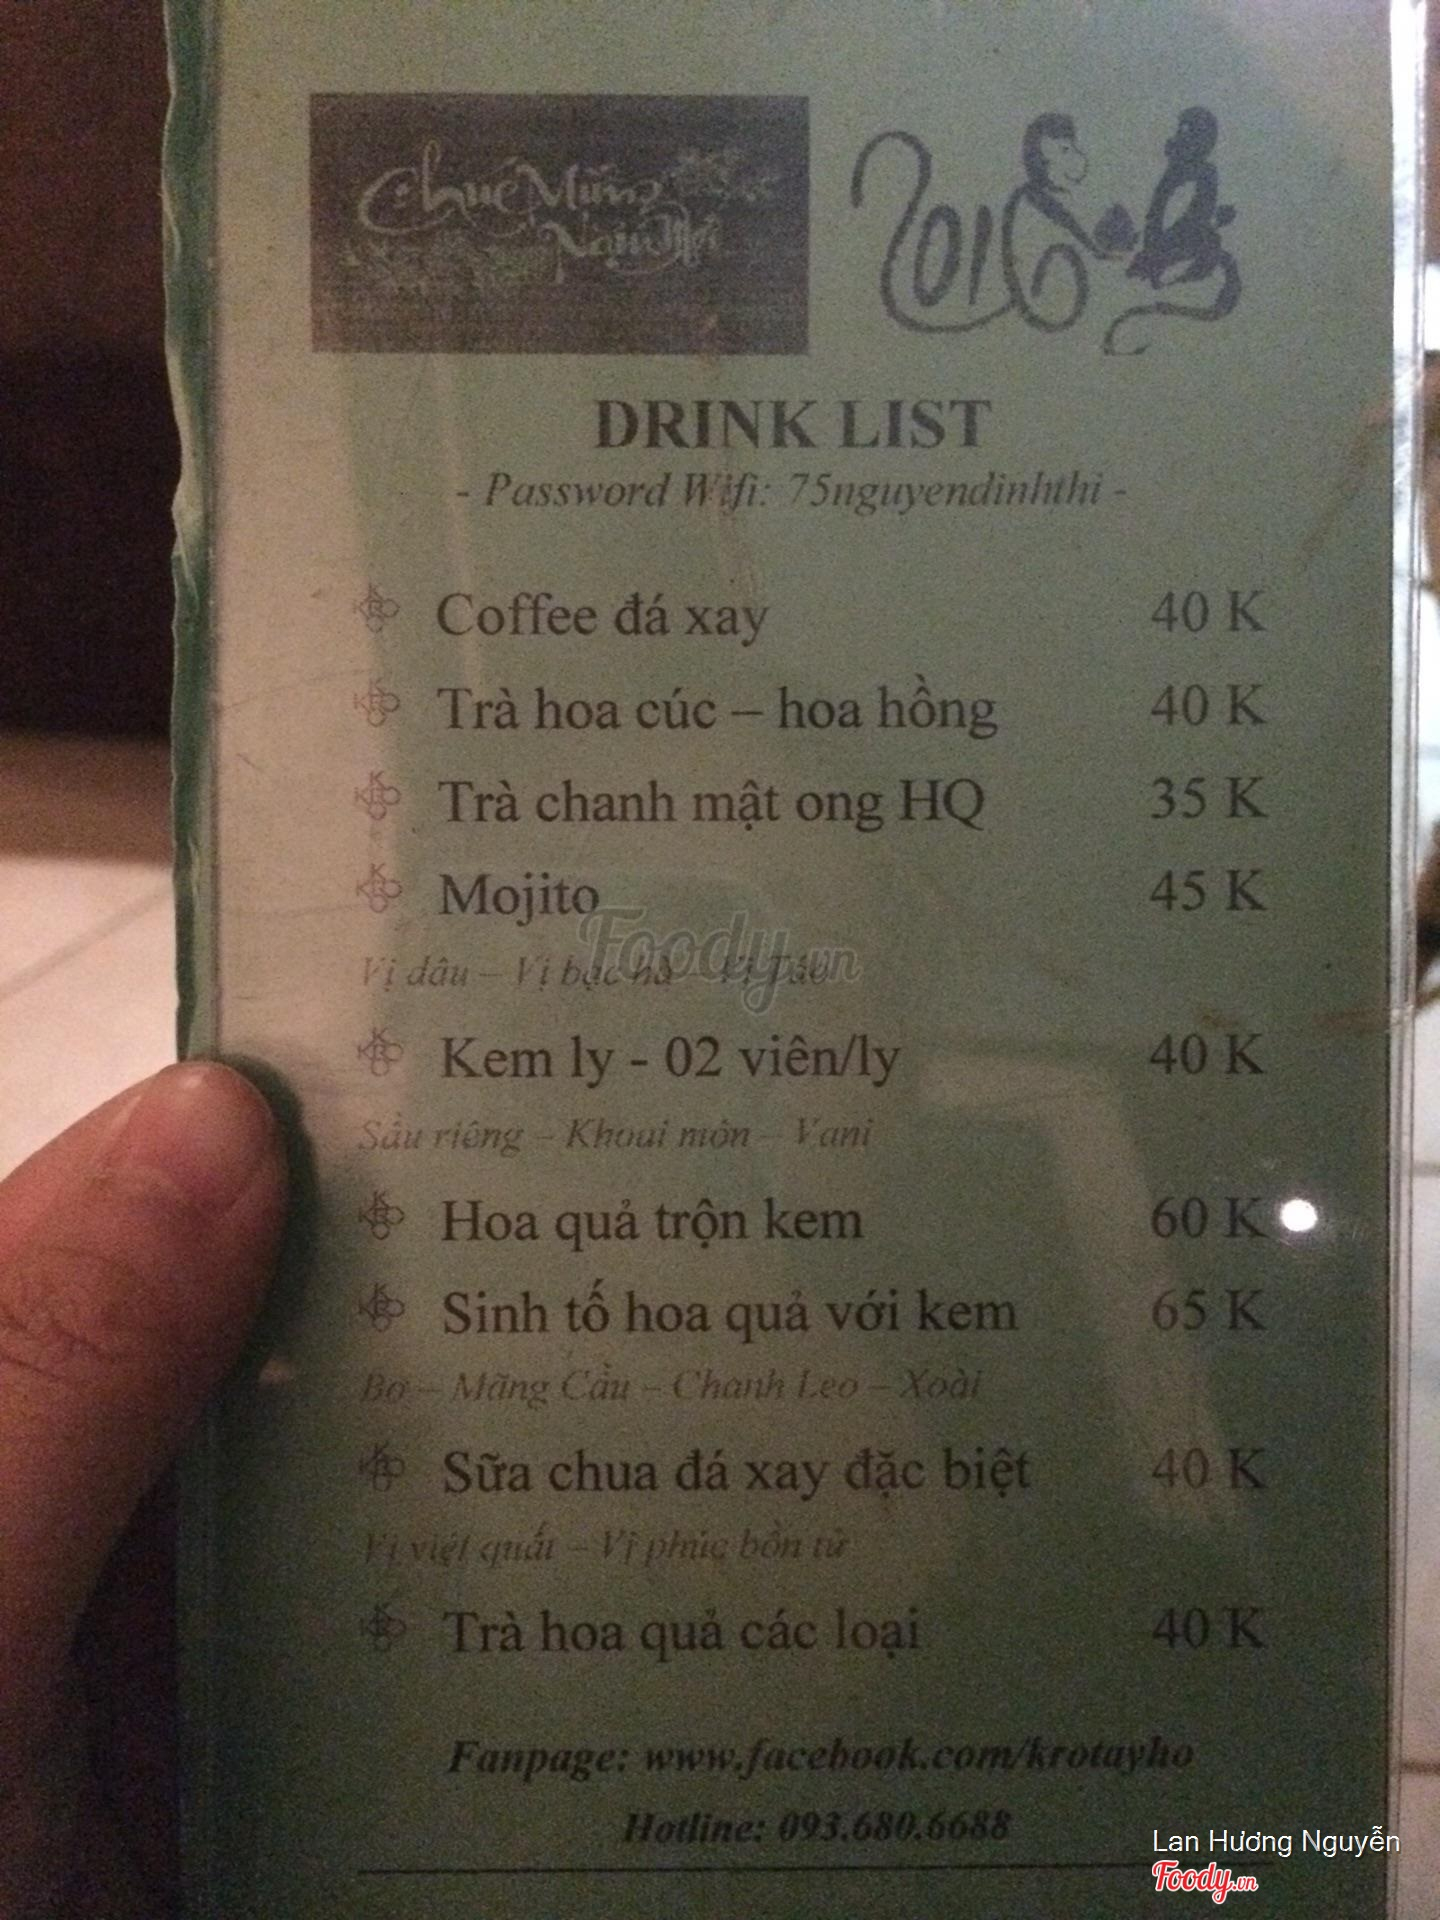 Chúc Mừng
Năm Mới
2016
DRINK LIST
- Password Wifi: 75nguyendinhthi -
Coffee đá xay 40 K
Trà hoa cúc – hoa hồng 40 K
Trà chanh mật ong HQ 35 K
Mojito 45 K
Foody.vn
Vị dâu – Vị bạc hà – Vị Táo
Kem ly - 02 viên/ly 40 K
Sầu riêng – Khoai môn – Vani
Hoa quả trộn kem 60 K
Sinh tố hoa quả với kem 65 K
Bơ – Mãng Cầu – Chanh Leo – Xoài
Sữa chua đá xay đặc biệt 40 K
Vị việt quất – Vị phúc bồn tử
Trà hoa quả các loại 40 K
Fanpage: www.facebook.com/krotayho
Hotline: 093.680.6688
Lan Hương Nguyễn
Foody.vn